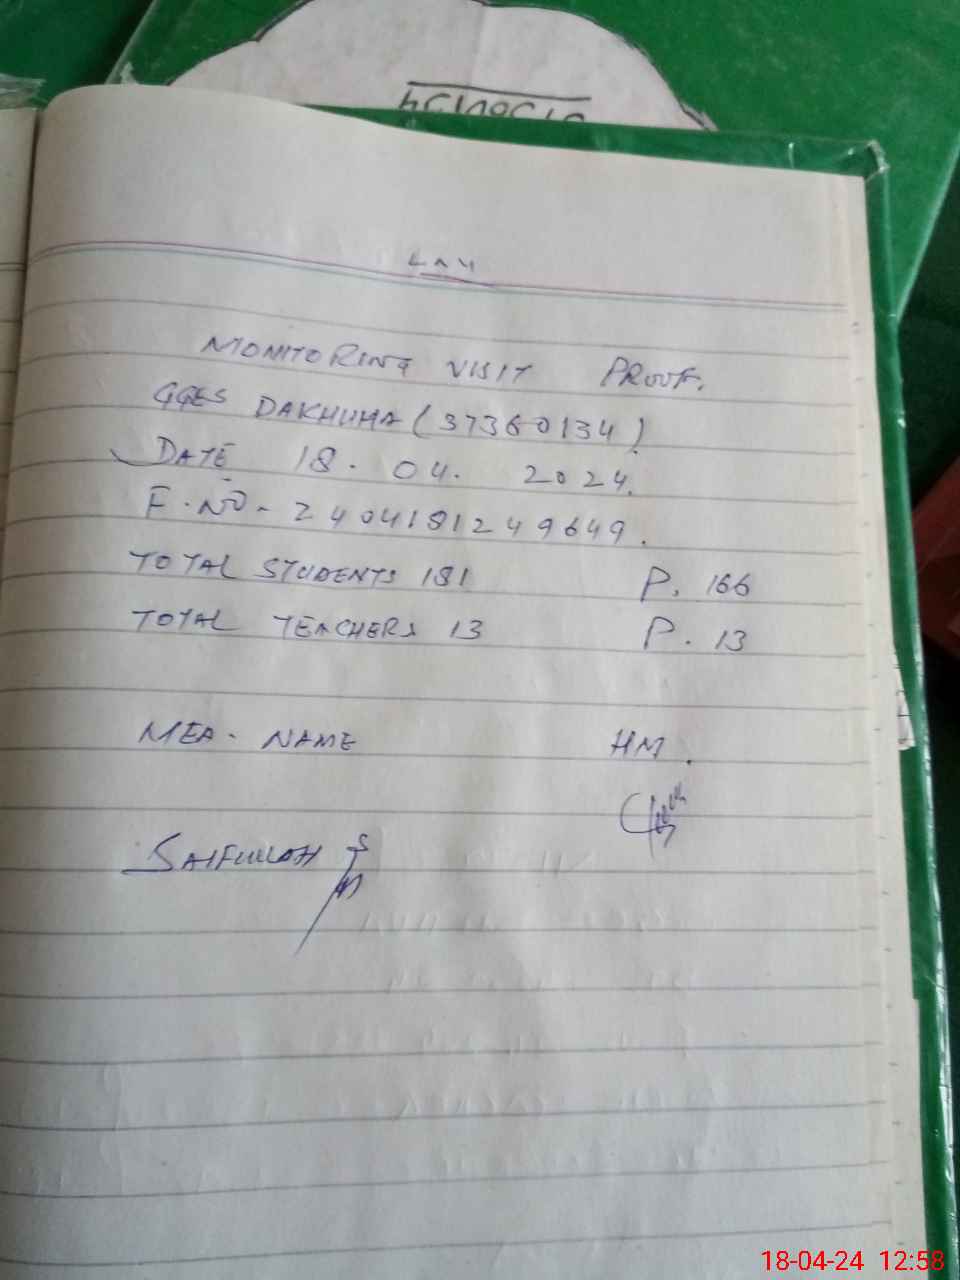 MONITORING VISIT PROOF.
GGES DAKHUHA (37360134)
DATE 18. 04. 2024.
F.NO- 2404181249649.
TOTAL STUDENTS 181 P. 166
TOTAL TEACHERS 13 P. 13
MEA. NAME HM.
SAIFULLAH
18-04-24 12:58